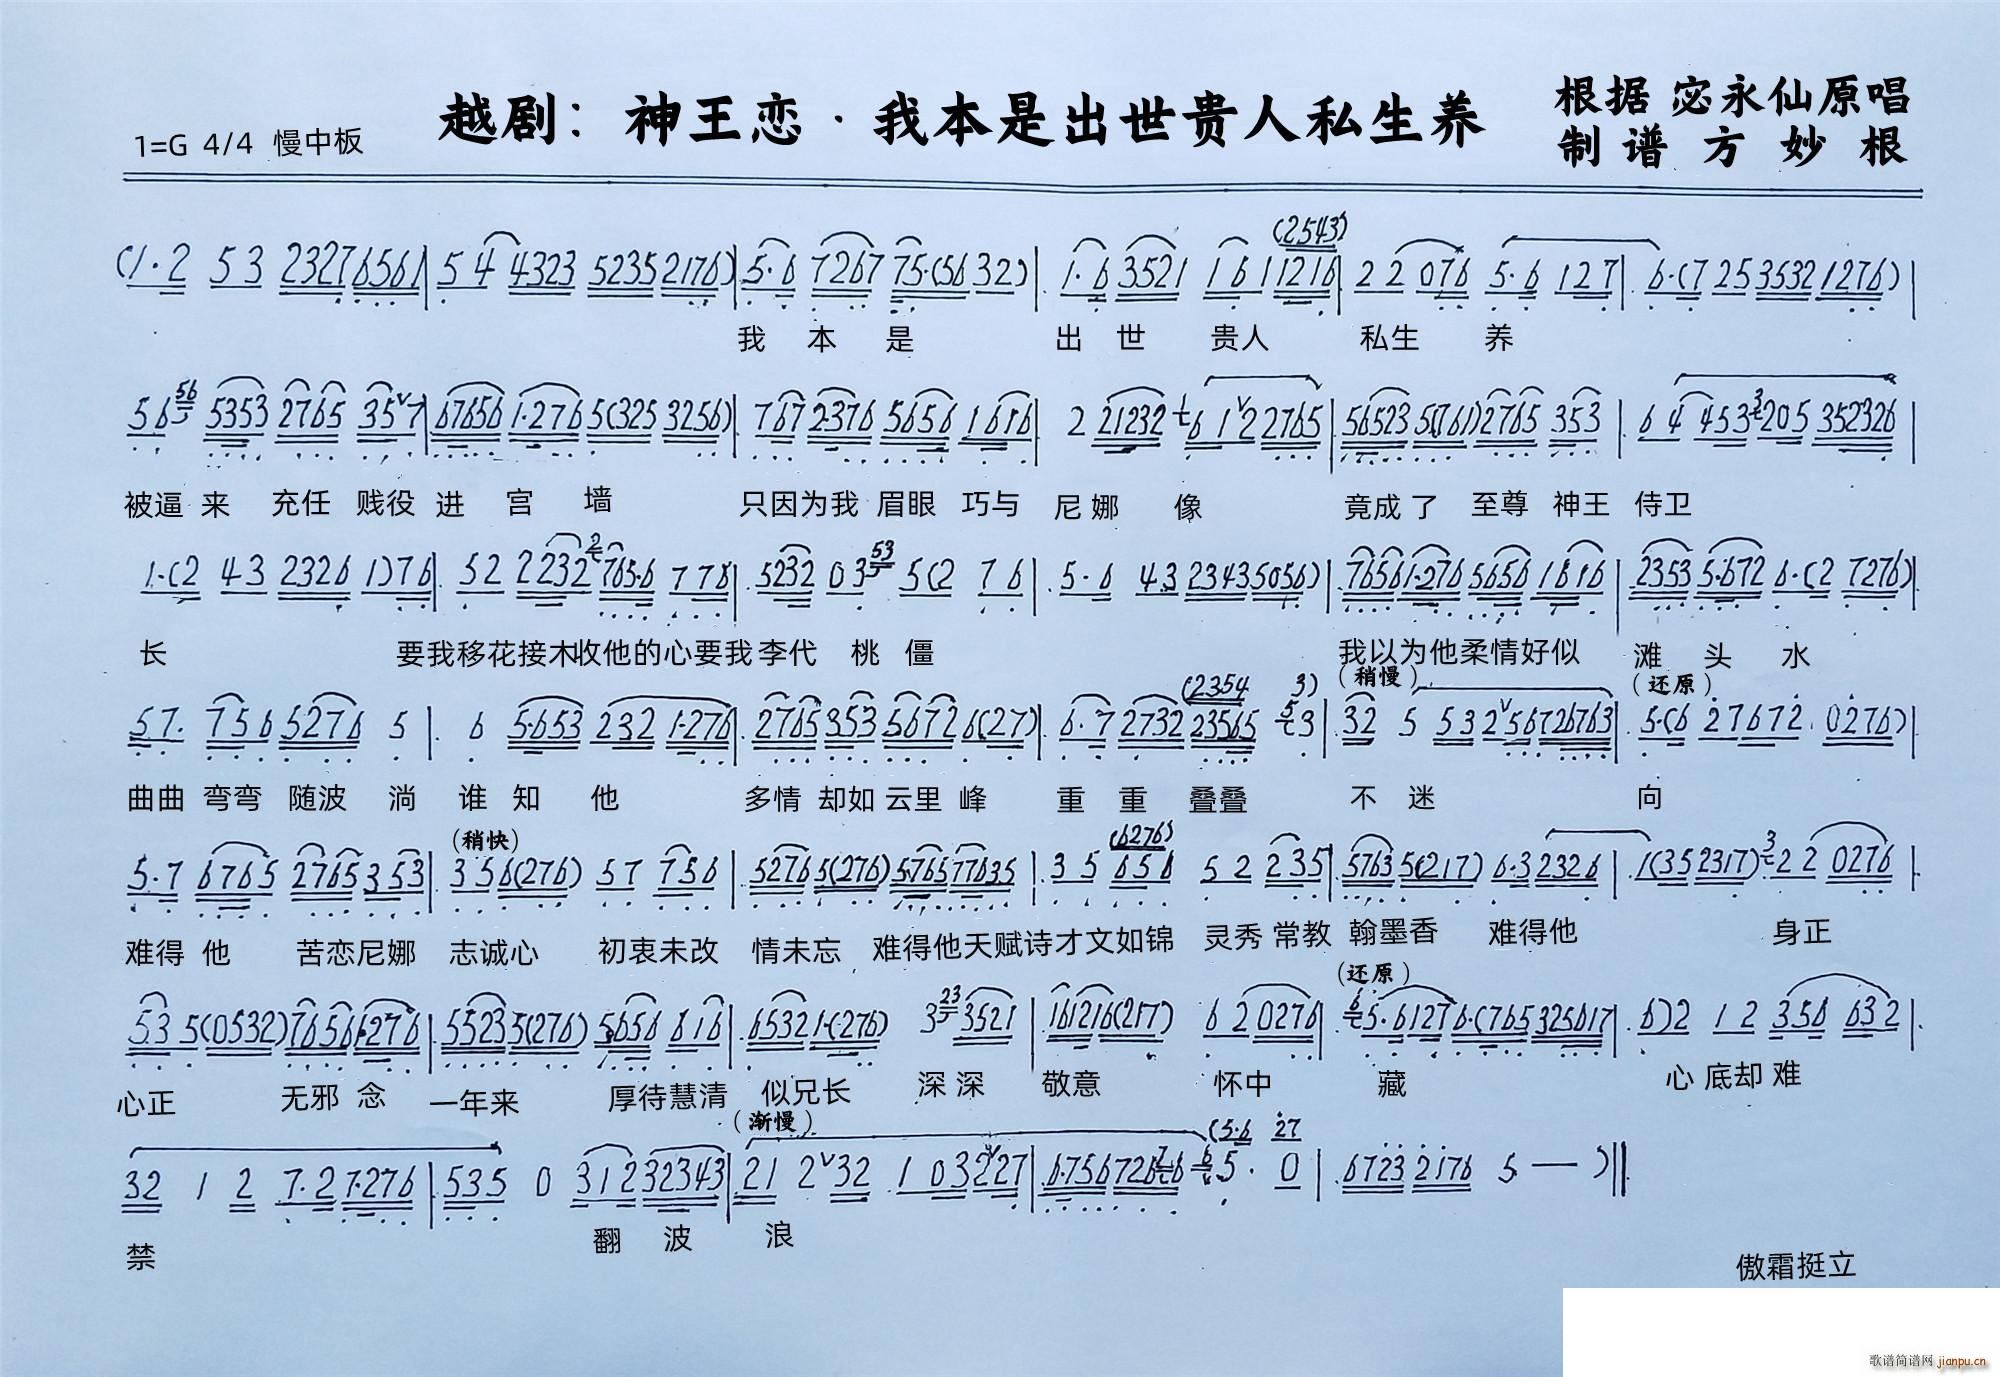 越剧：神王恋·我本是出世贵人私生养
根据 宓永仙原唱
1=G 4/4 慢中板
制谱 方妙根
(1·2 53 2327 6561 | 54 4323 5235 2176) | 5·6 7267 75·(56 32) | 1·6 3521 161 1216 (2543) | 22 076 5·6 127 | 6·(7 25 3532 1276) |
我 本 是 出 世 贵人 私生 养
56 56 5353 2765 35ˇ7 | 67656 1·276 5(325 3256) | 767 2376 5656 1616 | 2 21232 1 61ˇ2 2765 | 56523 5(761) 2765 353 | 64 453 3 205 352326 |
被逼 来 充任 贱役 进 宫 墙 只因为我 眉眼 巧与 尼娜 像 竟成了 至尊 神王 侍卫
1·(2 43 2326 1)76 | 52 2232 2 765·6 776 | 5232 03 53 5(2 76 | 5·6 43 2343 5056) | 7656 1·276 5656 1616 | 2353 5·672 6·(2 7276) |
长 要我移花接木收他的心要我 李代 桃 僵 我以为他柔情好似 滩 头 水
(稍慢) (还原)
57· 756 5276 5 | 6 5·653 232 1·276 | 2765 353 5672 6(27) | 6·7 2732 23565 (2354 5 3 3) | 32 5 53 2ˇ56 726763 | 5·(6 27672 0276) |
曲曲 弯弯 随波 淌 谁 知 他 多情 却如 云里 峰 重 重 叠叠 不 迷 向
(稍快)
5·7 6765 2765 353 | 356(276) 57 756 | 5276 5(276) 5·765 77635 | 35 656 (6276) 52 235 | 5763 5(217) 6·3 2326 | 1(35 2317) 3 22 0276 |
难得 他 苦恋尼娜 志诚心 初衷未改 情未忘 难得他天赋诗才文如锦 灵秀 常教 翰墨香 难得他 身正
(还原)
53 5(0532) 7656 6276 | 5523 5(276) 5656 616 | 6532 1·(276) 3 23 3521 | 161216(217) 62 0276 | 6 5·6127 6·(765 325617 | 6)2 12 356 632 |
心正 无邪 念 一年来 厚待慧清 似兄长 深深 敬意 怀中 藏 心 底却 难
(渐慢)
32 1 2 7·2 7·276 | 535 0 312 32343 | 21 2ˇ32 1 032ˇ27 | 6·756 726 7 6 6 5· 0 (5·6 27 | 6723 2176 5 — ) ‖
禁 翻 波 浪
傲霜挺立
歌谱简谱网 jianpu.cn